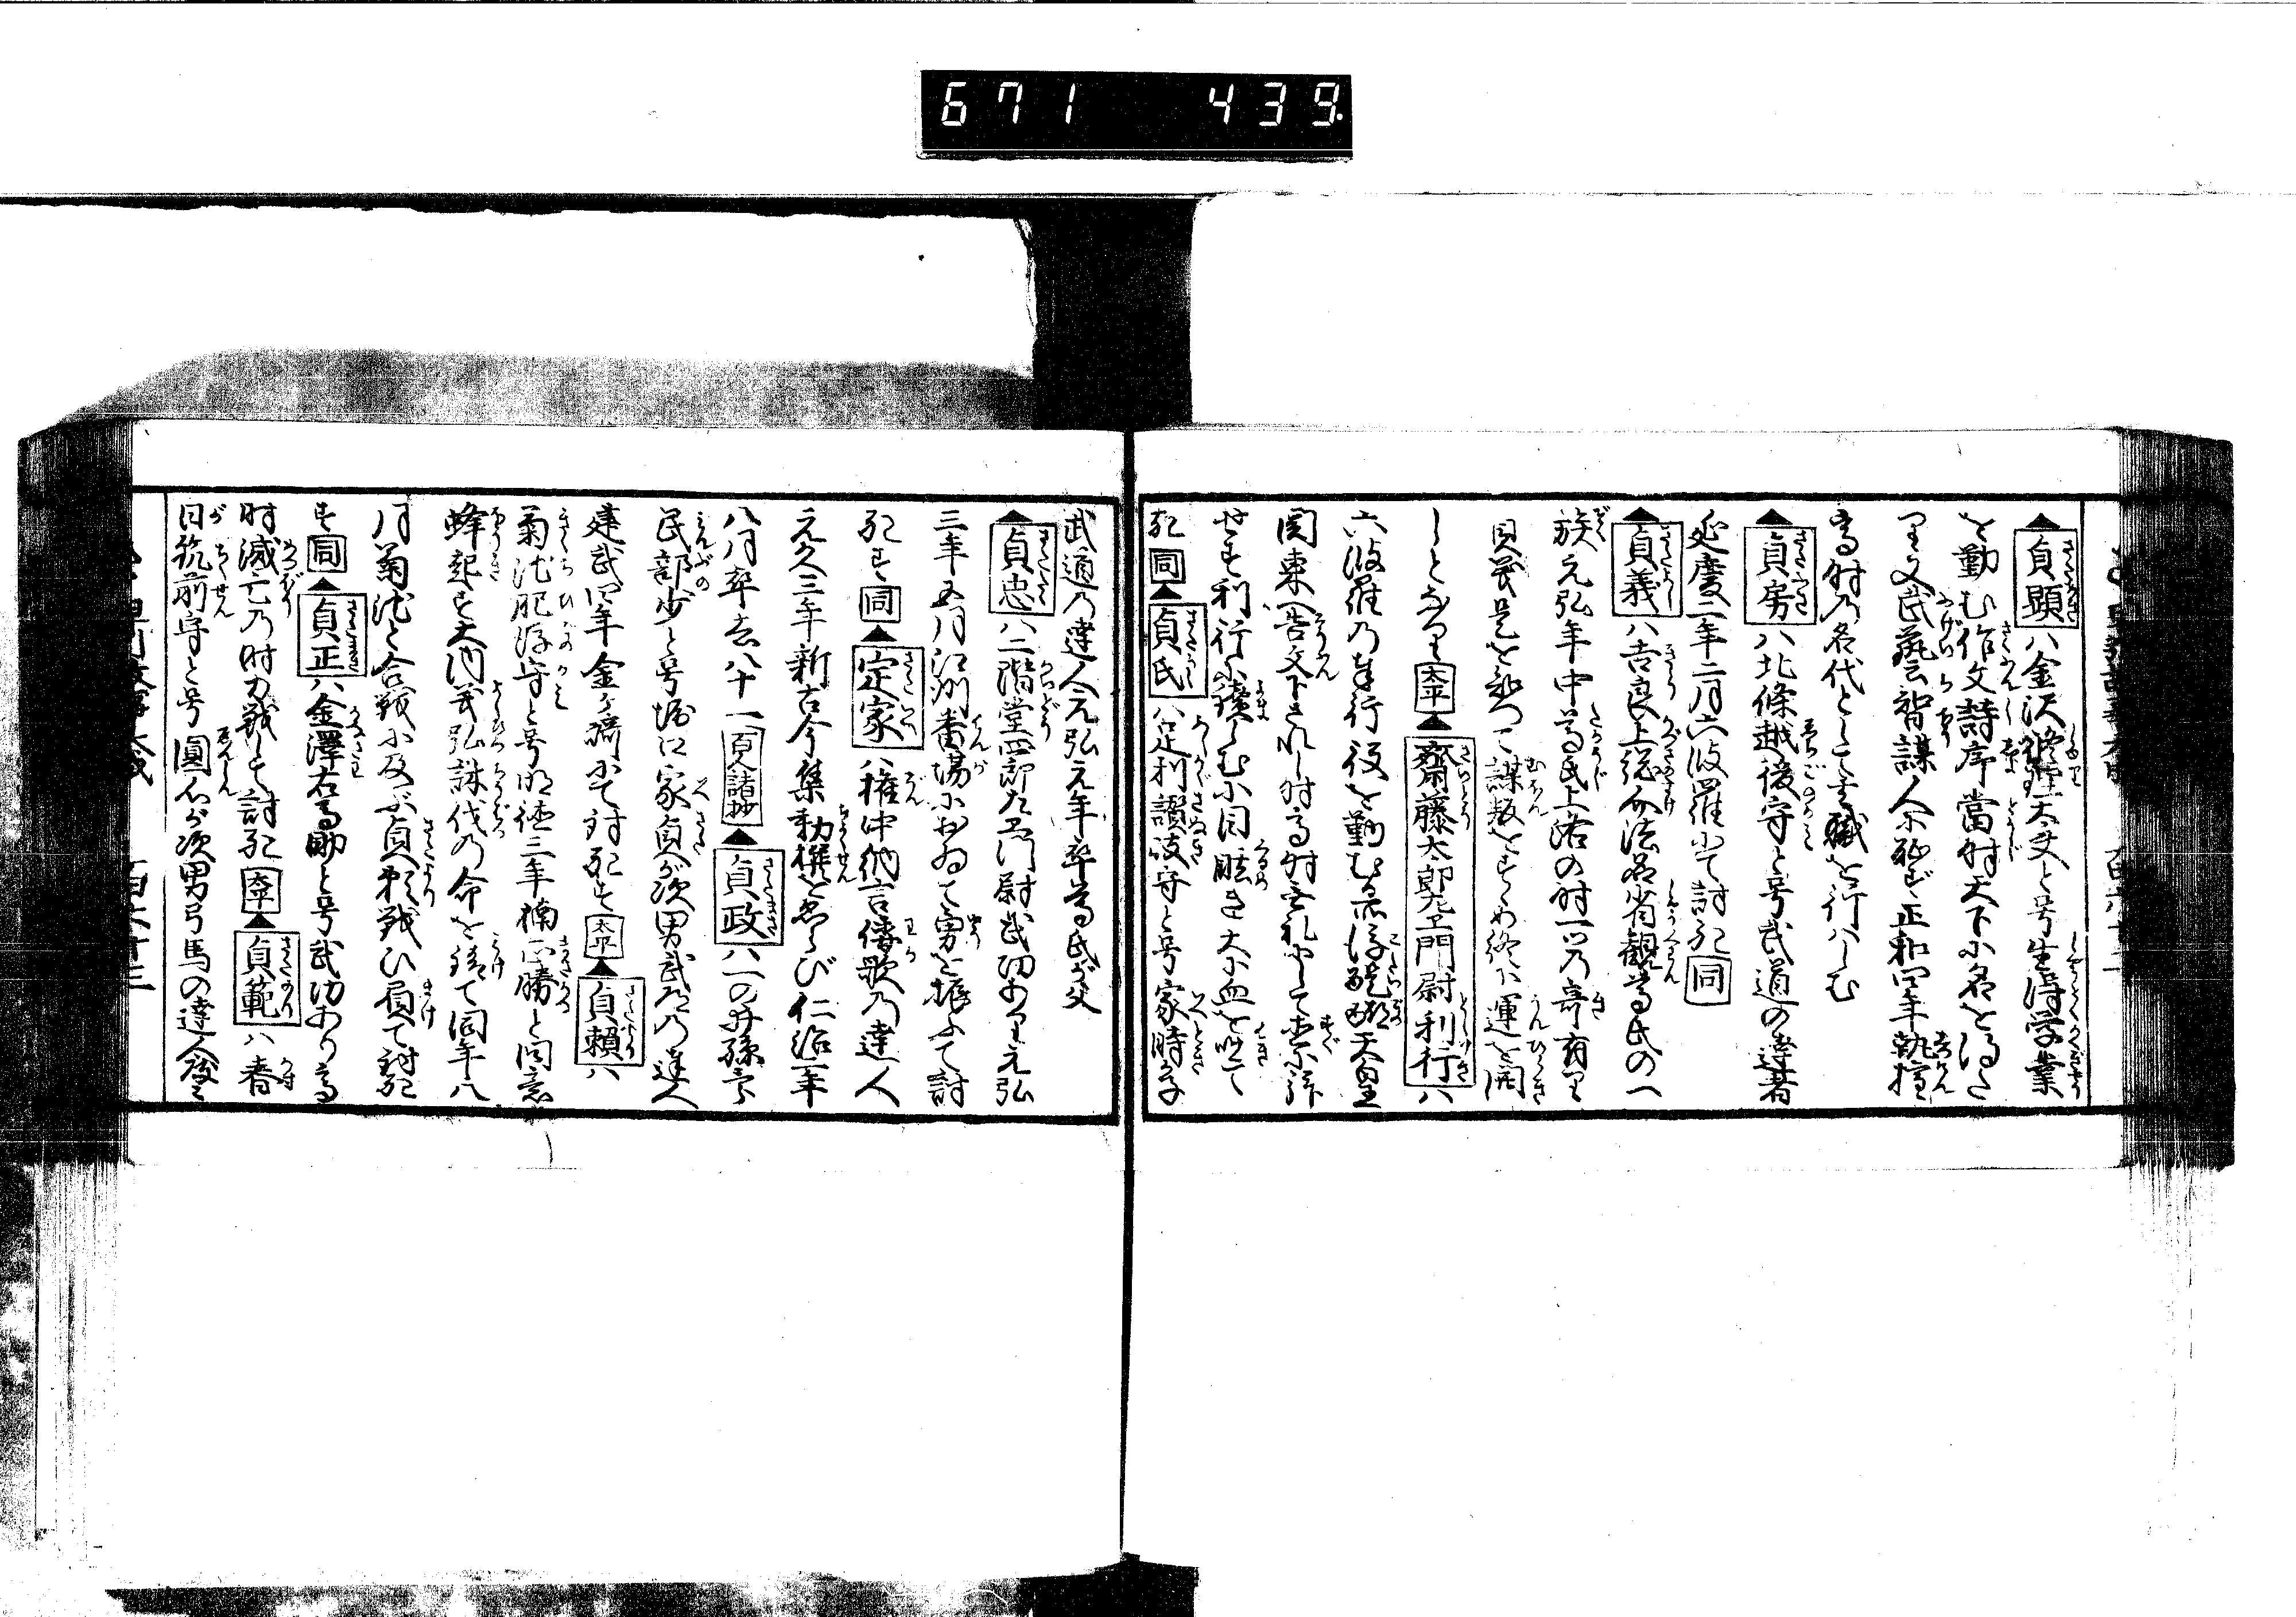 671 439
▲貞顕ハ金沢修理大夫と号生得学業
を勤む作文詩序當時天下に名を得た
り又武藝云智謀人に秘ず正和四年執権
高時の名代として其職を行ハしむ
▲貞房ハ北條越後守と号武道の達者
延慶二年二月六波羅にて討死同
▲貞義ハ吉良上総介法名省観尊氏の一
族元弘年中尊氏上洛の時一つ乃奇有り
貞義是を以て謀叛をすゝめ終に運を開
しとなり太平▲齋藤太郎左エ門尉利行ハ
六波羅乃奉行役を勤む後醍醐天皇
関東へ告文下されし時高時無礼にして
せず利行に讀しむに目眩き大に血を吐て
死同▲貞氏ハ足利讃岐守と号家時が子
武道乃達人元弘元年卒尊氏が父
▲貞忠ハ二階堂四郎左エ門尉武功あり元弘
三年五月江州番場におゐて勇を振ふて討
死す同▲定家ハ権中納言倭歌乃達人
元久三年新古今集勅撰をゑらび仁治二年
八月卒去八十一百人諸抄▲貞政ハ一の井孫三郎
民部少と号堀口家貞が次男武道乃達人
建武四年金ヶ崎にて討死す太平▲貞頼ハ
菊池肥後守と号明徳三年楠正勝と同意
蜂起す大内義弘誅伐乃命を請て同年八
月菊池と合戦に及ぶ貞頼戦ひ負て討死
す同▲貞正ハ金澤右馬助と号武功あり高
時滅亡乃時力戦して討死太平▲貞範ハ春
日筑前守と号圓心が次男弓馬の達人後に
百六十三